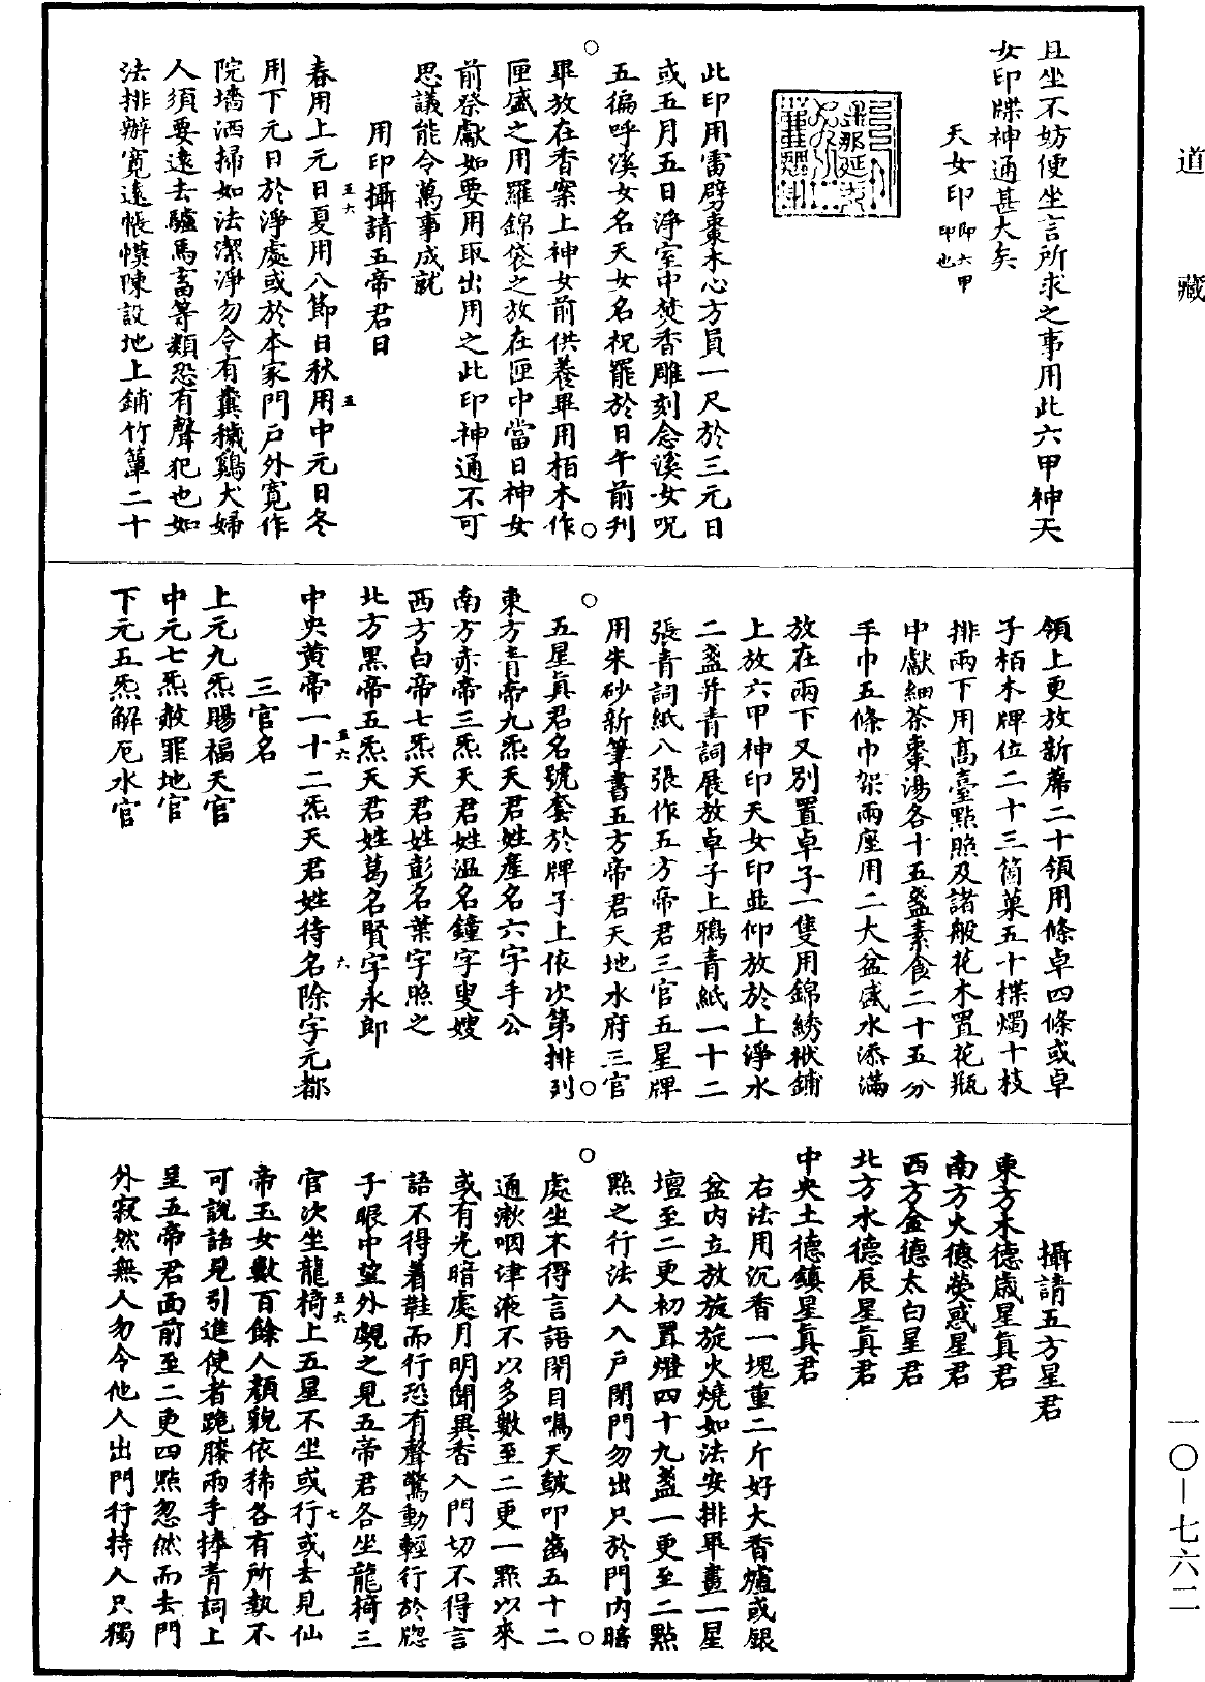 道藏
且坐不妨便坐言所求之事用此六甲神天
女印牒神通甚大矣
天女印即六甲印也
此印用雷劈棗木心方員一尺於三元日
或五月五日淨室中焚香雕刻念溪女呪
五徧呼溪女名天女名祝罷於日午前刋
畢放在香案上神女前供養畢用栢木作
匣盛之用羅錦袋之放在匣中當日神女
前祭獻如要用取出用之此印神通不可
思議能令萬事成就
用印攝請五帝君日
春用上元日夏用八節日秋用中元日冬
用下元日於淨處或於本家門戶外寬作
院墻洒掃如法潔淨勿令有糞穢鷄犬婦
人須要遠去驢馬畜等類恐有聲犯也如
法排辦寬遠帳幙陳設地上鋪竹簟二十
領上更放新蓆二十領用條卓四條或卓
子栢木牌位二十三箇菓五十楪燭十枝
排兩下用高臺點照及諸般花木置花瓶
中獻細茶棗湯各十五盞素食二十五分
手巾五條巾架兩座用二大盆盛水添滿
放在兩下又別置卓子一隻用錦綉袱鋪
上放六甲神印天女印並仰放於上淨水
二盞并青詞展放卓子上鴉青紙一十二
張青詞紙八張作五方帝君三官五星牌
用朱砂新筆書五方帝君天地水府三官
五星真君名號套於牌子上依次第排列
東方青帝九炁天君姓産名六字手公
南方赤帝三炁天君姓溫名鐘字叟嫂
西方白帝七炁天君姓彭名葉字照之
北方黑帝五炁天君姓萬名賢字永郎
中央黃帝一十二炁天君姓待名除字元都
三官名
上元九炁賜福天官
中元七炁赦罪地官
下元五炁解厄水官
攝請五方星君
東方木德歲星真君
南方火德熒惑星君
西方金德太白星君
北方水德辰星真君
中央土德鎮星真君
右法用沉香一塊重二斤好大香爐或銀
盆內立放旋旋火燒如法安排畢畫一星
壇至二更初置燈四十九盞一更至二點
點之行法人入戶閉門勿出只於門內暗
處坐不得言語閉目鳴天皷叩齒五十二
通漱咽津液不以多數至二更一點以來
或有光暗處月明聞異香入門切不得言
語不得着鞋而行恐有聲驚動輕行於牕
子眼中望外覷之見五帝君各坐龍椅三
官次坐龍椅上五星不坐或行或去見仙
帝玉女數百餘人顏貌依稀各有所執不
可說話見引進使者跪膝兩手捧青詞上
呈五帝君面前至二更四點忽然而去門
外寂然無人勿令他人出門行持人只獨
五六
五
五六
六
五六
七
一〇—七六二